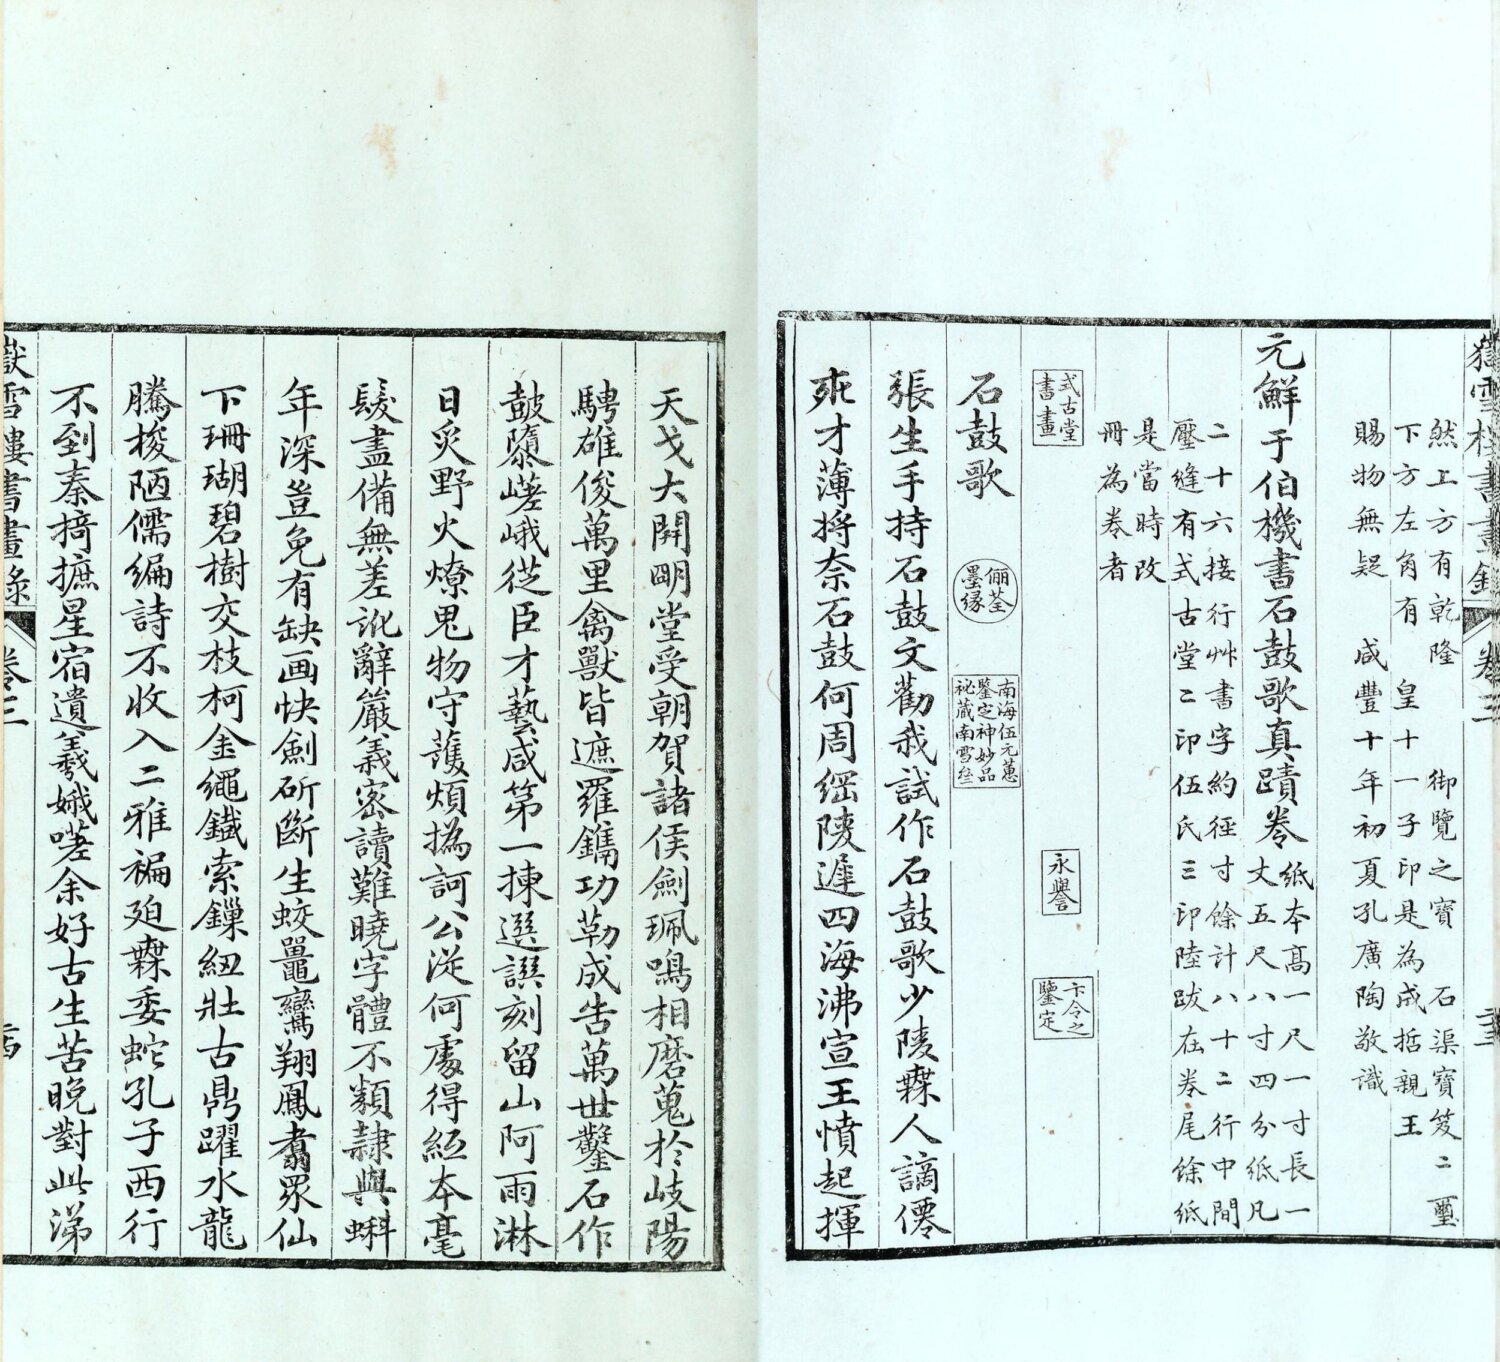 嶽雪樓書畫錄 卷三 二十三
然上方有乾隆 御覽之寶 石渠寶笈二璽
下方左角有 皇十一子印是為成哲親王
賜物無疑 咸豐十年初夏孔廣陶敬識
元鮮于伯機書石鼓歌真蹟卷
紙本高一尺一寸長一
丈五尺八寸四分紙凡
二十六接行艸書字約徑寸餘計八十二行中間
壓縫有式古堂二印伍氏三印陸跋在卷尾餘紙
是當時改
冊為卷者
式古堂
書畫
永譽
卞令之
鑒定
石鼓歌
儷荃
墨緣
南海伍元蕙
鑒定神妙品
祕藏南雪叄
張生手持石鼓文勸我試作石鼓歌少陵無人謫僊
死才薄將奈石鼓何周綱陵遲四海沸宣王憤起揮
天戈大開明堂受朝賀諸侯劍珮鳴相磨蒐於岐陽
騁雄俊萬里禽獸皆遮羅鐫功勒成告萬世鑿石作
鼓隳嵯峨從臣才藝咸第一揀選譔刻留山阿雨淋
日炙野火燎鬼物守護煩撝訶公從何處得紙本毫
髮盡備無差訛辭嚴義密讀難曉字體不類隸與蝌
年深豈免有缺画快劍斫斷生蛟鼉鸞翔鳳翥眾仙
下珊瑚碧樹交枝柯金繩鐵索鏁紐壯古鼎躍水龍
騰梭陋儒編詩不收入二雅褊迫無委蛇孔子西行
不到秦掎摭星宿遺羲娥嗟余好古生苦晚對此涕
嶽雪樓書畫錄 卷三 二十四